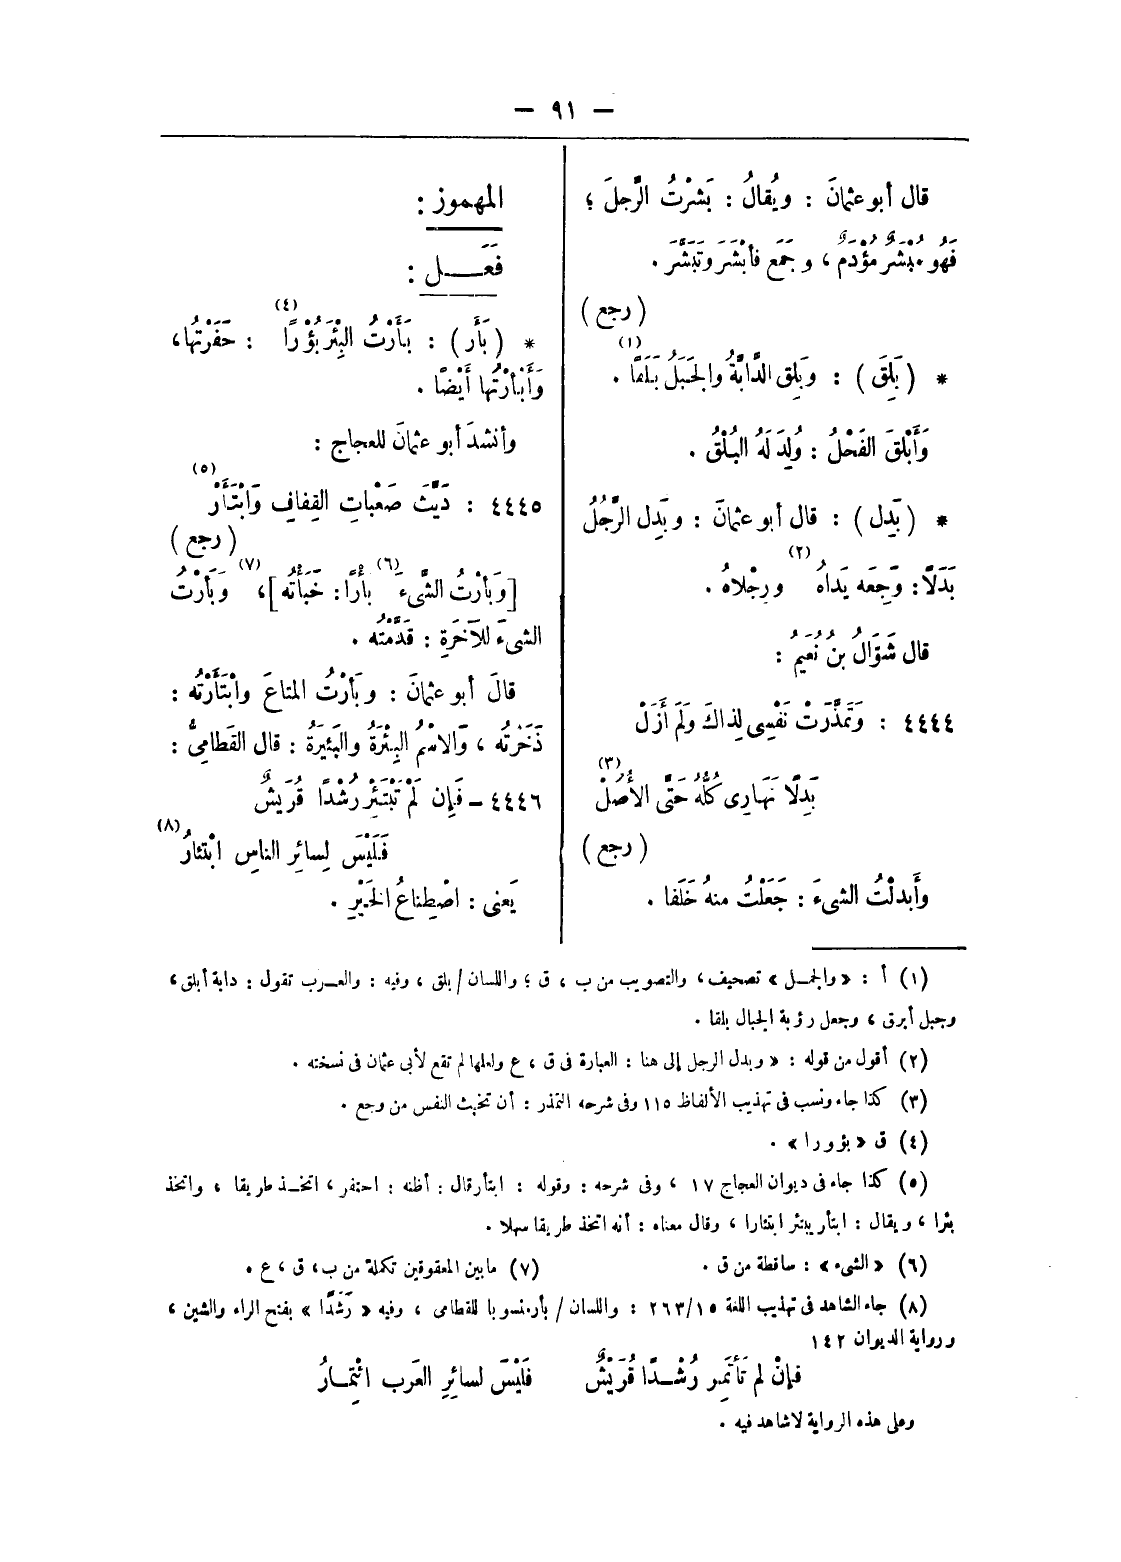 — ٩١ —
قال أبو عثمانَ : ويُقالُ : بَشرْتُ الرَّجلَ ؛
فَهُو مُبْشَرٌ مُؤْدَمٌ ، وجَمَع فأبْشَرَ وتَبَشَّرَ .
( رجع )
* ( بَلِقَ ) : وبَلِق الدَّابَّةُ والجَبَلُ بَلَقًا (١) .
وَأَبْلقَ الفَحْلُ : وُلِدَ لَهُ البُلْقُ .
* ( بَدِل ) : قال أبو عثمانَ : وبَدِل الرَّجُلُ
بَدَلًا: وَجِعَه يَداهُ (٢) ورِجْلاهُ .
قال شَوَّالُ بنُ نُعَيمُ :
٤٤٤٤ : وَتَمَذَّرَتْ نَفْسِى لِذاكَ وَلَم أَزَلْ
بَدِلًا نَهَارِى كُلُّهُ حَتَّى الأُصُلْ (٣)
( رجع )
وأَبدلْتُ الشىءَ : جَعَلْتُ منهُ خَلَفا .
المهموز :
فَعَـــل :
* ( بَأَر ) : بَأَرْتُ البِئْرَ بُؤْرًا (٤) : حَفَرْتُها،
وَأَبْأرْتُها أَيْضًا .
وأنشدَ أبو عثمانَ للعجاج :
٤٤٤٥ : دَيَّثَ صَعْباتِ القِفافِ وَابْتَأَرْ (٥)
( رجع )
[وَبأَرْتُ الشَّىءَ (٦) بأْرًا: خَبَأْتُه]، (٧) وَبَأَرْتُ
الشىءَ للآخَرةِ : قَدَّمْتُه .
قالَ أبو عثمانَ : وبَأرْتُ المتاعَ وابْتَأَرْتُه :
ذَخَرْتُه ، وَالاسْمُ البِئْرَةُ والبَئِيرَةُ : قال القَطامِىُّ :
٤٤٤٦ - فَإِن لَمْ تَبْتَئِرْ رُشْدًا قُرَيشٌ
فَلَيْسَ لِسائِرِ الناسِ ابْتئارُ (٨)
يَعنى : اصْطِناعُ الخَيْرِ .
(١) أ : « والجمـل » تصحيف، والتصويب من ب ، ق ؛ واللسان / بلق ، وفيه : والعـرب تقول : دابة أبلق،
وجبل أبرق ، وجعل رؤبة الجبال بلقا .
(٢) أقول من قوله : « وبدل الرجل إلى هنا : العبارة فى ق ، ع ولعلها لم تقع لأبى عثمان فى نسخته .
(٣) كذا جاء ونسب فى تهذيب الألفاظ ١١٥ وفى شرحه التمذر : أن تخبث النفس من وجع .
(٤) ق « بؤورا » .
(٥) كذا جاء فى ديوان العجاج ١٧ ، وفى شرحه : وقوله : ابتأر قال : أظنه : احتفر ، اتخـذ طريقا ، واتخذ
بئرا ، ويقال : ابتأر يبتئر ابتئارا ، وقال معناه : أنه اتخذ طريقا سهلا .
(٦) « الشىء » : ساقطة من ق . (٧) مابين المعقوفين تكملة من ب، ق ، ع .
(٨) جاء الشاهد فى تهذيب اللغة ٢٦٣/١٥ : واللسان / بأر منسوبا للقطامى ، وفيه « رَشَدًا » بفتح الراء والشين ،
ورواية الديوان ١٤٢
فإنْ لم تَأتَمِر رُشْـدًا قُرَيْشٌ فَلَيْسَ لسائِرِ العَرب ائْتِمـارُ
وعلى هذه الرواية لاشاهد فيه .